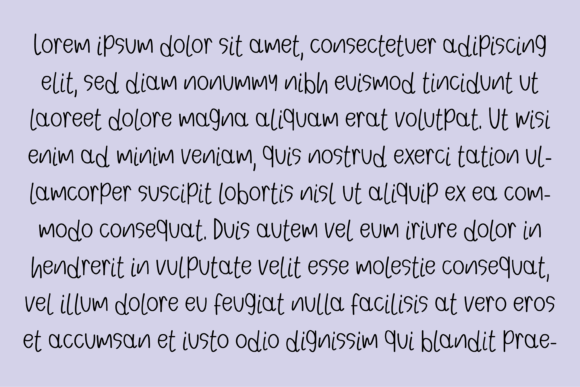 lorem ipsum dolor sit amet, consectetuer adipiscing
elit, sed diam nonummy nibh euismod tincidunt ut
laoreet dolore magna aliquam erat volutpat. Ut wisi
enim ad minim veniam, quis nostrud exerci tation ul-
lamcorper suscipit lobortis nisl ut aliquip ex ea com-
modo consequat. Duis autem vel eum iriure dolor in
hendrerit in vulputate velit esse molestie consequat,
vel illum dolore eu feugiat nulla facilisis at vero eros
et accumsan et iusto odio dignissim qui blandit prae-